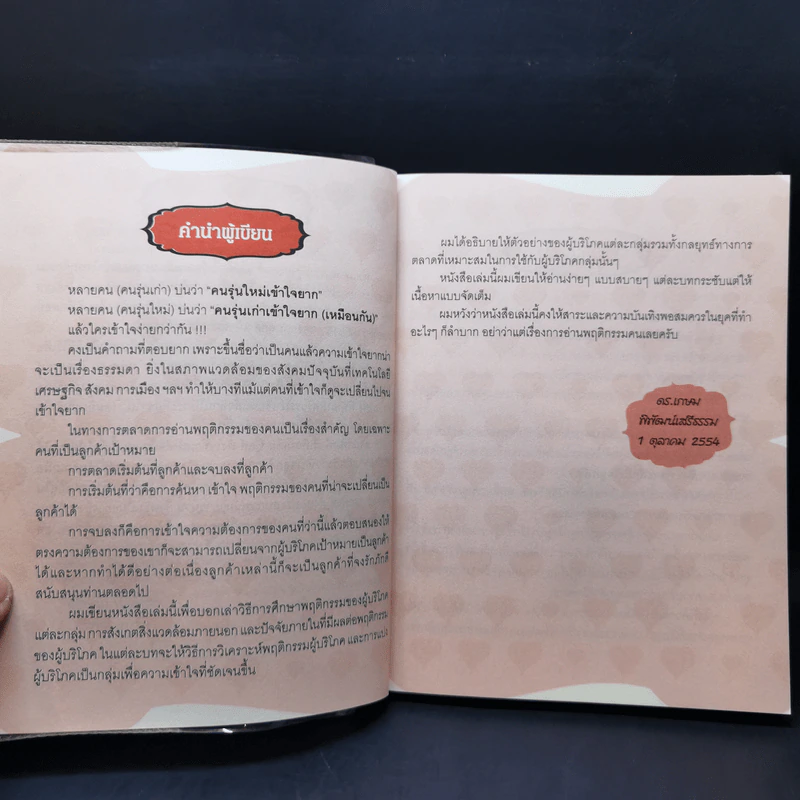 คำนำผู้เขียน
หลายคน (คนรุ่นเก่า) บ่นว่า "คนรุ่นใหม่เข้าใจยาก"
หลายคน (คนรุ่นใหม่) บ่นว่า "คนรุ่นเก่าเข้าใจยาก (เหมือนกัน)"
แล้วใครเข้าใจง่ายกว่ากัน !!!
คงเป็นคำถามที่ตอบยาก เพราะขึ้นชื่อว่าเป็นคนแล้วความเข้าใจยากน่า
จะเป็นเรื่องธรรมดา ยิ่งในสภาพแวดล้อมของสังคมปัจจุบันที่เทคโนโลยี
เศรษฐกิจ สังคม การเมือง ฯลฯ ทำให้บางทีแม้แต่คนที่เข้าใจก็ดูจะเปลี่ยนไปจน
เข้าใจยาก
ในทางการตลาดการอ่านพฤติกรรมของคนเป็นเรื่องสำคัญ โดยเฉพาะ
คนที่เป็นลูกค้าเป้าหมาย
การตลาดเริ่มต้นที่ลูกค้าและจบลงที่ลูกค้า
การเริ่มต้นที่ว่าคือการค้นหา เข้าใจ พฤติกรรมของคนที่น่าจะเปลี่ยนเป็น
ลูกค้าได้
การจบลงก็คือการเข้าใจความต้องการของคนที่ว่านี้แล้วตอบสนองให้
ตรงความต้องการของเขาก็จะสามารถเปลี่ยนจากผู้บริโภคเป้าหมายเป็นลูกค้า
ได้และหากทำได้ดีอย่างต่อเนื่องลูกค้าเหล่านี้ก็จะเป็นลูกค้าที่จงรักภักดี
สนับสนุนท่านตลอดไป
ผมเขียนหนังสือเล่มนี้เพื่อบอกเล่าวิธีการศึกษาพฤติกรรมของผู้บริโภค
แต่ละกลุ่ม การสังเกตสิ่งแวดล้อมภายนอก และปัจจัยภายในที่มีผลต่อพฤติกรรม
ของผู้บริโภค ในแต่ละบทจะให้วิธีการวิเคราะห์พฤติกรรมผู้บริโภค และการแบ่ง
ผู้บริโภคเป็นกลุ่มเพื่อความเข้าใจที่ชัดเจนขึ้น
ผมได้อธิบายให้ตัวอย่างของผู้บริโภคแต่ละกลุ่มรวมทั้งกลยุทธ์ทางการ
ตลาดที่เหมาะสมในการใช้กับผู้บริโภคกลุ่มนั้นๆ
หนังสือเล่มนี้ผมเขียนให้อ่านง่ายๆ แบบสบายๆ แต่ละบทกระชับแต่ให้
เนื้อหาแบบจัดเต็ม
ผมหวังว่าหนังสือเล่มนี้คงให้สาระและความบันเทิงพอสมควรในยุคที่ทำ
อะไรๆ ก็ลำบาก อย่าว่าแต่เรื่องการอ่านพฤติกรรมคนเลยครับ
ดร.เกษม
พิพัฒน์เสรีธรรม
1 ตุลาคม 2554